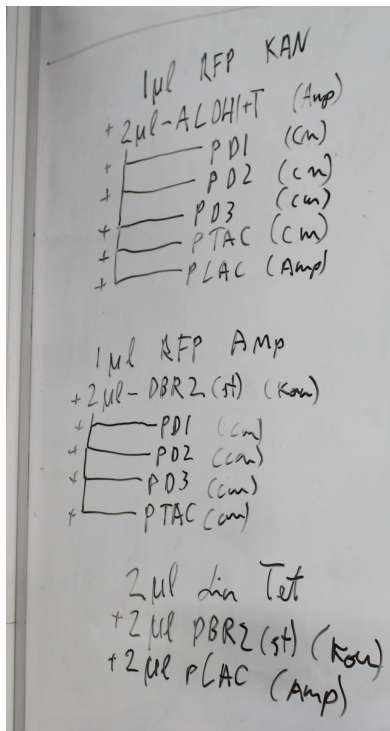 1µl RFP KAN
+ 2µl - ALDH1+T (Amp)
+ PD1 (Cm)
+ PD2 (cm)
+ PD3 (cm)
+ PTAC (Cm)
+ PLAC (Amp)
1µl RFP AMp
+ 2µl - DBR2 (st) (Kan)
+ PD1 (cm)
+ PD2 (cam)
+ PD3 (cm)
+ PTAC (cm)
2µl Lin Tet
+ 2µl PBR2 (st) (Kan)
+ 2µl PLAC (Amp)